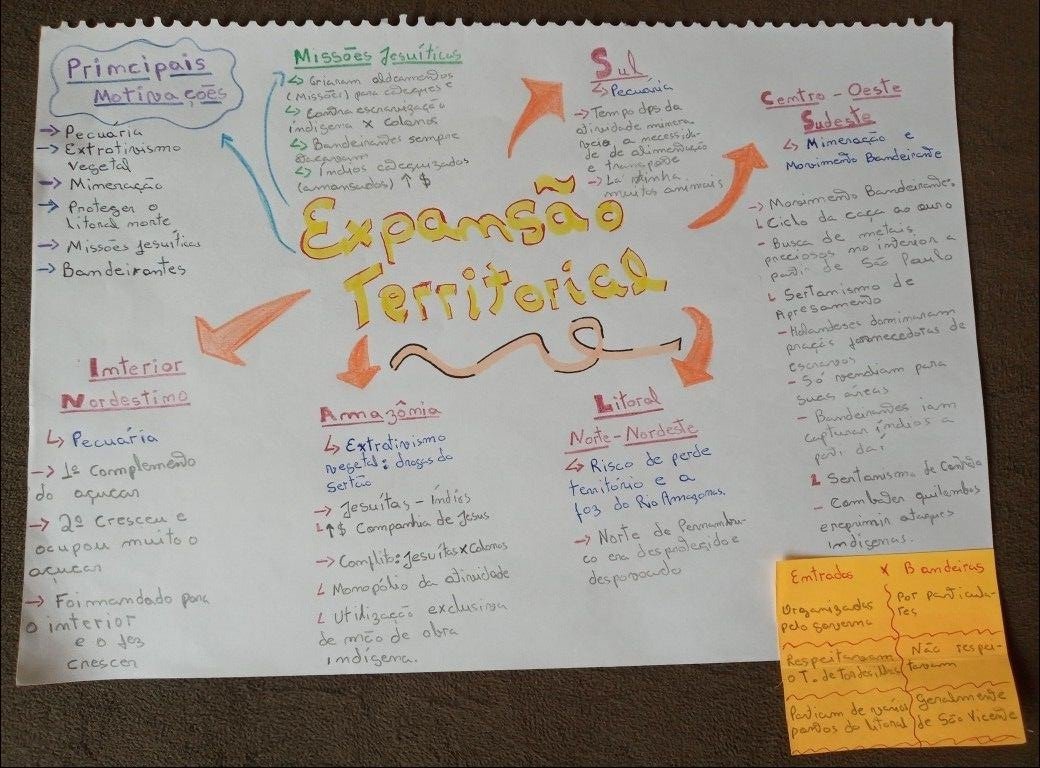 Principais
Motivações
→ Pecuária
→ Extrativismo
Vegetal
→ Mineração
→ Proteger o
litoral norte
→ Missões Jesuíticas
→ Bandeirantes
Missões Jesuíticas
↳ Criaram aldeamentos
(Missões) para catequese e
↳ Contra escravização
indígena x colonos
↳ Bandeirantes sempre
atacavam
↳ Índios catequizados
(amansados) ↑ $
Sul
↳ Pecuária
→ Tempo dps da
atividade minera-
a necessida-
de de alimentação
e transporte
→ Lá tinha
muitos animais
Centro-Oeste
Sudeste
↳ Mineração e
Movimento Bandeirante
→ Movimento Bandeirante:
L Ciclo da caça ao ouro
- Busca de metais
preciosos no interior a
partir de São Paulo
L Sertanismo de
Apresamento
- Holandeses dominaram
praças fornecedoras de
escravos
- Só vendiam para
suas áreas
- Bandeirantes iam
capturar índios a
parti daí
L Sertanismo de Contrato
- Combater quilombos
e reprimir ataques
indígenas.
Expansão
Territorial
Interior
Nordestino
↳ Pecuária
→ 1º Complemento
do açúcar
→ 2º Cresceu e
ocupou muito o
açúcar
→ Foi mandado para
o interior
e o fez
crescer
Amazônia
↳ Extrativismo
vegetal: drogas do
sertão
→ Jesuítas - Índios
L ↑$ Companhia de Jesus
→ Conflito: Jesuítas x Colonos
L Monopólio da atividade
L Utilização exclusiva
de mão de obra
indígena.
Litoral
Norte-Nordeste
↳ Risco de perde
território e a
foz do Rio Amazonas.
→ Norte de Pernambu-
co era desprotegido e
despovoado
Entradas x Bandeiras
Organizadas
pelo governo
Por particula-
res
Respeitavam
o T. de Tordesilhas
Não respei-
tavam
Partiam de vários
pontos do litoral
Geralmente
de São Vicente